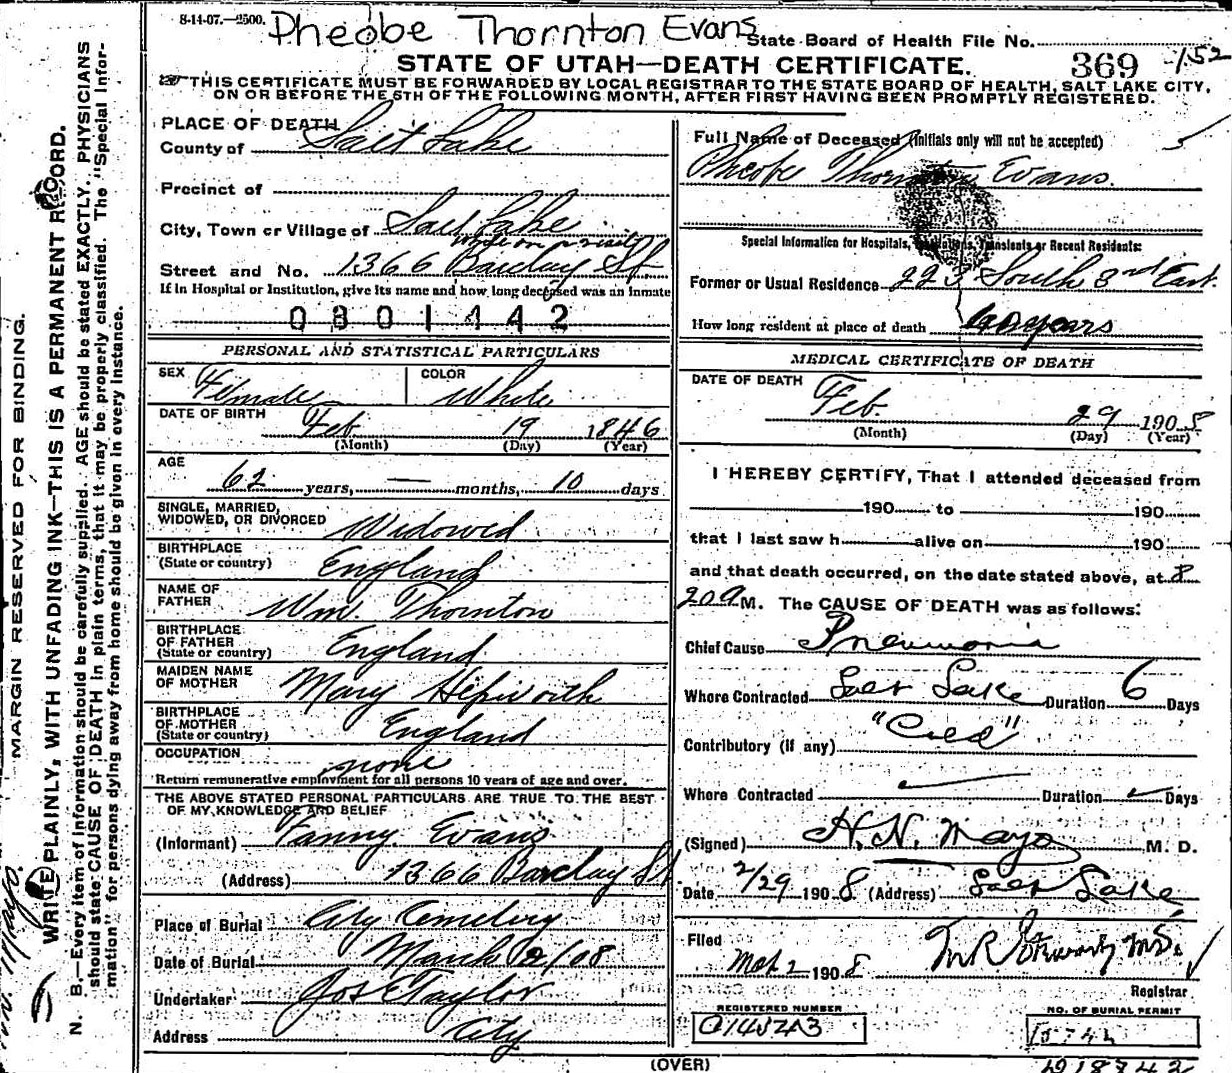 8-14-07.—2500.
Pheobe Thornton Evans
State Board of Health File No.
369 152
STATE OF UTAH—DEATH CERTIFICATE.
THIS CERTIFICATE MUST BE FORWARDED BY LOCAL REGISTRAR TO THE STATE BOARD OF HEALTH, SALT LAKE CITY,
ON OR BEFORE THE 5TH OF THE FOLLOWING MONTH, AFTER FIRST HAVING BEEN PROMPTLY REGISTERED.
MARGIN RESERVED FOR BINDING.
WRITE PLAINLY, WITH UNFADING INK—THIS IS A PERMANENT RECORD.
N. B.—Every item of Information should be carefully supplied. AGE should be stated EXACTLY. PHYSICIANS
should state CAUSE OF DEATH in plain terms, that it may be properly classified. The "Special Infor-
mation" for persons dying away from home should be given in every instance.
PLACE OF DEATH
County of Salt Lake
Precinct of
City, Town or Village of Salt Lake
while on a visit
Street and No. 1366 Barclay St
If in Hospital or Institution, give its name and how long deceased was an inmate
0801442
PERSONAL AND STATISTICAL PARTICULARS
SEX Female COLOR White
DATE OF BIRTH Feb 19 1846
(Month) (Day) (Year)
AGE
62 years, — months, 10 days
SINGLE, MARRIED,
WIDOWED, OR DIVORCED Widowed
BIRTHPLACE
(State or country) England
NAME OF
FATHER Wm. Thornton
BIRTHPLACE
OF FATHER
(State or country) England
MAIDEN NAME
OF MOTHER Mary Hepworth
BIRTHPLACE
OF MOTHER
(State or country) England
OCCUPATION none
Return remunerative employment for all persons 10 years of age and over.
THE ABOVE STATED PERSONAL PARTICULARS ARE TRUE TO THE BEST
OF MY KNOWLEDGE AND BELIEF
(Informant) Fanny Evans
(Address) 1366 Barclay St
Place of Burial City Cemetery
Date of Burial March 2/08
Undertaker Jos E Taylor
Address City
Full Name of Deceased (Initials only will not be accepted)
Pheobe Thornton Evans.
Special Information for Hospitals, Institutions, Transients or Recent Residents:
Former or Usual Residence 223 South 3rd East.
How long resident at place of death years
MEDICAL CERTIFICATE OF DEATH
DATE OF DEATH Feb 29 1908
(Month) (Day) (Year)
I HEREBY CERTIFY, That I attended deceased from
190 to 190
that I last saw h alive on 190
and that death occurred, on the date stated above, at 8
20 a M. The CAUSE OF DEATH was as follows:
Chief Cause Pneumonia
Where Contracted Salt Lake Duration 6 Days
Contributory (if any) "Cold"
Where Contracted Duration Days
(Signed) H. N. Mayo M. D.
Date 2/29 1908 (Address) Salt Lake
Filed
Mar 2 1908
Registrar
REGISTERED NUMBER
NO. OF BURIAL PERMIT
(OVER)